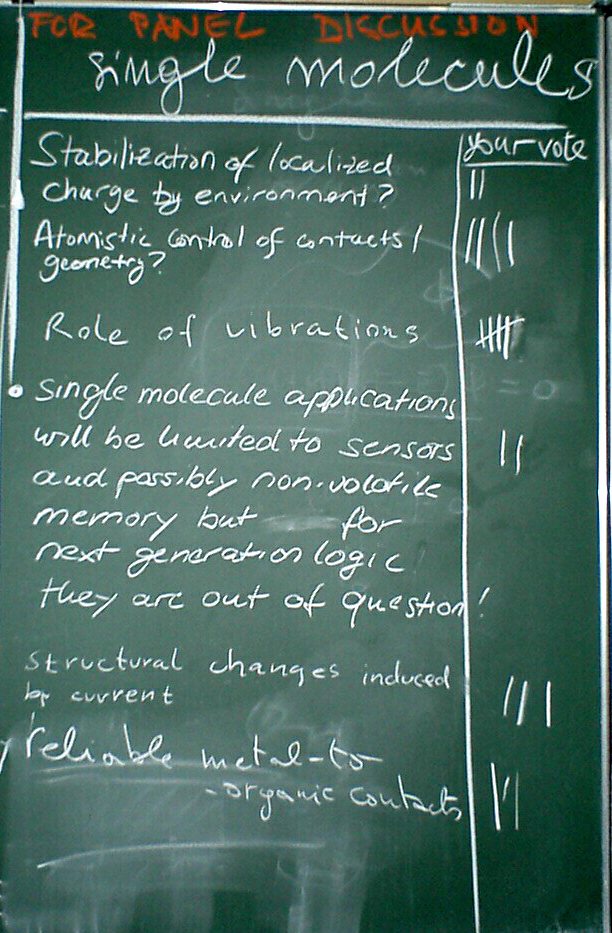 FOR PANEL DISCUSSION
single molecules
your vote
Stabilization of localized
charge by environment?
||
Atomistic control of contacts/
geometry?
||||
Role of vibrations
• single molecule applications
will be limited to sensors
||
and possibly non-volatile
memory but for
next generation logic
they are out of question!
structural changes induced
by current
|||
reliable metal-to-
-organic contacts
|||